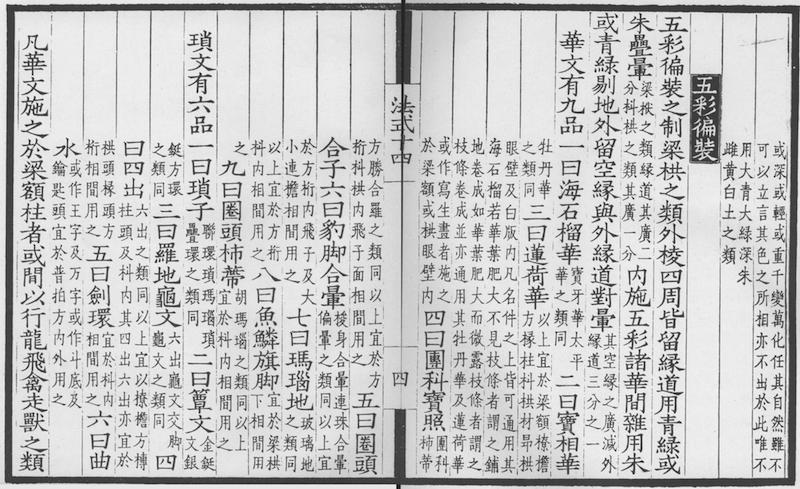 或深或輕或重千變萬化任其自然雖不
可以立言其色之所相亦不出於此唯不
用大青大綠深朱
雌黄白土之類
五彩徧裝
五彩徧裝之制梁栱之類外棱四周皆留緣道用青綠或
朱疊暈梁栿之類緣道其廣二分科栱之類其廣一分内施五彩諸華間雜用朱
或青綠剔地外留空緣與外緣道對暈其空緣之廣減外緣道三分之一
華文有九品一曰海石榴華寳牙華太平華之類同二曰寳相華
牡丹華之類同三曰蓮荷華以上宜於梁額橑檐方椽柱科栱材昂栱
眼壁及白版内凡名件之上皆可通用其
海石榴若華葉肥大不見枝條者謂之鋪
地卷成如華葉肥大而微露枝條者謂之
枝條卷成並亦通用其牡丹華及蓮荷華
或作寫生畫者施之於梁額或栱眼壁内四曰團科寳照團科柿蔕
法式十四
四
方勝合羅之類同以上宜於方桁科栱内飛子面相間用之五曰圈頭
合子六曰豹脚合暈梭身合暈連珠合暈偏暈之類同以上宜
於方桁内飛子及大小連檐相間用之七曰瑪瑙地玻璃地之類同
以上宜於方桁科内相間用之八曰魚鱗旗脚宜於梁栱下相間用
之九曰圈頭柿蔕胡瑪瑙之類同以上宜於科内相間用之
瑣文有六品一曰瑣子聯環瑣瑪瑙瑣疊環之類同二曰簟文金鋌文銀
鋌方環之類同三曰羅地龜文六出龜文交脚龜文之類同四
曰四出六出之類同以上宜以橑檐方槫柱頭及科内其四出六出亦宜於
栱頭椽頭方桁相間用之五曰劔環宜於科内相間用之六曰曲
水或作王字及万字或作斗底及鑰匙頭宜於普拍方内外用之
凡華文施之於梁額柱者或間以行龍飛禽走獸之類